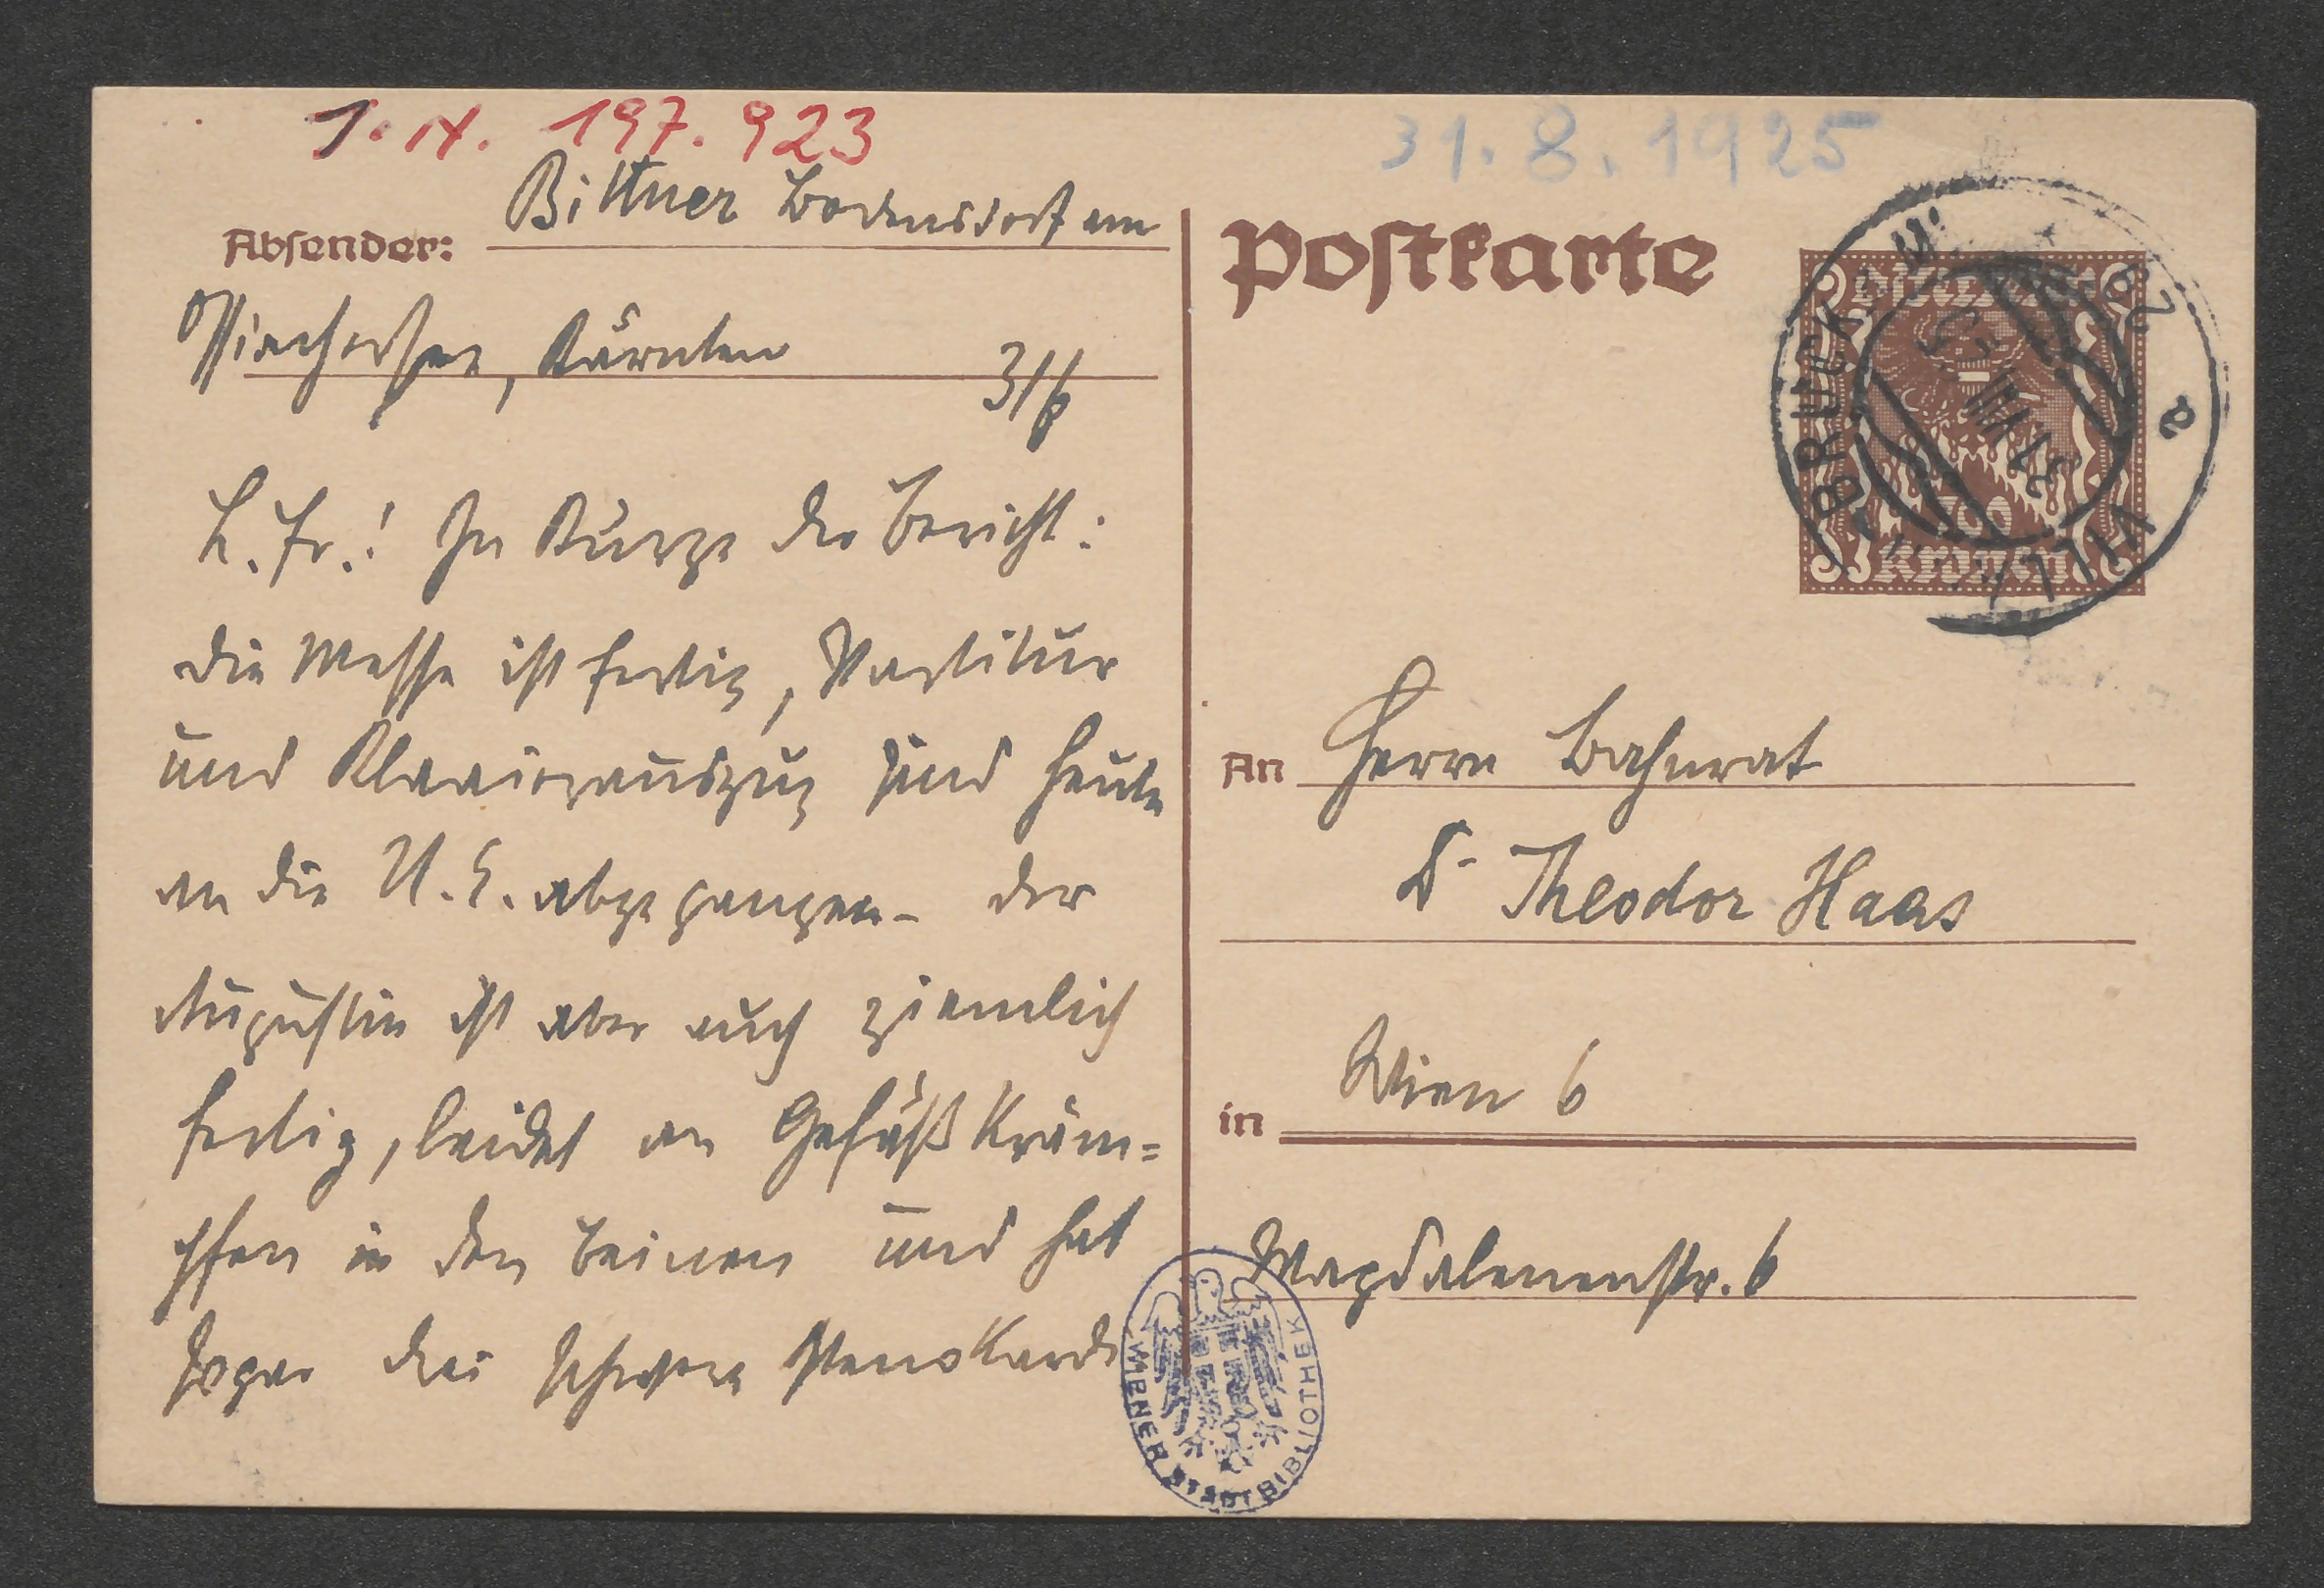 I. N. 197.923
31.8.1925
Absender: Bittner Bodensdorf am
Ossiachersee, Kärnten 31/8
L. Fr.! In Kürze der Bericht:
die Messe ist fertig, Partitur
und Klavierauszug sind heute
an die U. E. abgegangen – der
Augustin ist aber auch ziemlich
fertig, leidet an Gefäßkräm=
pfen in den Beinen und hat
sogar drei schwere Stenokardi
Postkarte
BRUCK A. D. M.
VILLACH
31.VIII.25
700
Kronen
An Herrn Bahnrat
Dr Theodor Haas
in Wien 6
Magdalenenstr. 6
WIENER STADTBIBLIOTHEK